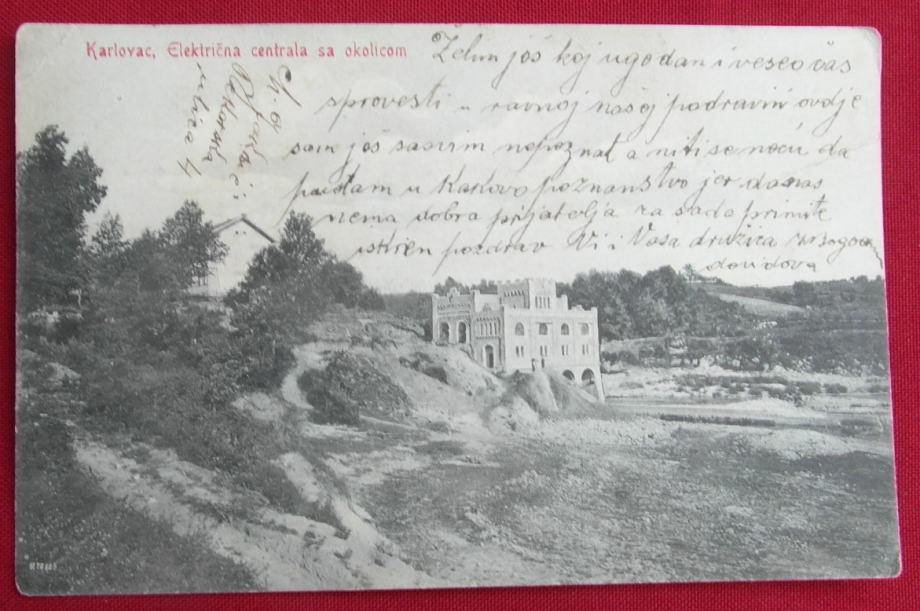 Karlovac, Električna centrala sa okolicom
Želim još koj ugodan i veseo čas
sprovesti u ravnoj našoj podravini ovdje
sam još sasvim nepoznat a niti se neću da
pustam u Kakovo poznanstvo jer danas
nema dobra prijatelja za sada primite
iskren pozdrav Vi i Vaša družica
davidova
ulica 4